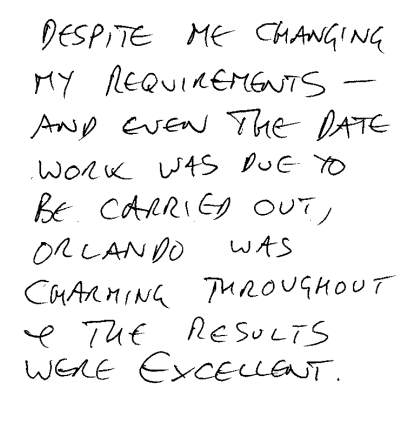 DESPITE ME CHANGING
MY REQUIREMENTS —
AND EVEN THE DATE
WORK WAS DUE TO
BE CARRIED OUT,
ORLANDO WAS
CHARMING THROUGHOUT
& THE RESULTS
WERE EXCELLENT.